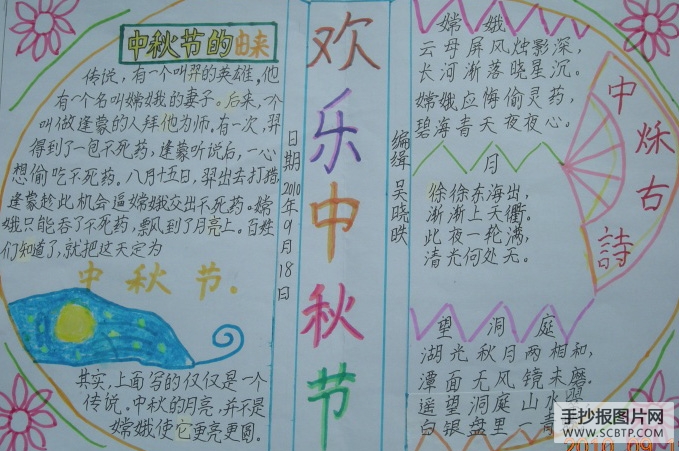 中秋节的由来
传说，有一个叫羿的英雄，他
有一个名叫嫦娥的妻子。后来，一个
叫做逢蒙的人拜他为师，有一次，羿
得到了一包不死药，逢蒙听说后，一心
想偷吃不死药。八月十五日，羿出去打猎，
逢蒙趁此机会逼嫦娥交出不死药。嫦
娥只能吞了不死药，飘风到了月亮上。百姓
们知道了，就把这天定为
中秋节.
其实，上面写的仅仅是一个
传说。中秋的月亮，并不是
嫦娥使它更亮更圆。
日期2010年9月18日
欢乐中秋节
编缉 吴晓昳
嫦娥
云母屏风烛影深，
长河渐落晓星沉。
嫦娥应悔偷灵药，
碧海青天夜夜心。
月
徐徐东海出，
渐渐上天衢。
此夜一轮满，
清光何处无。
中秌古詩
望洞庭
湖光秋月两相和，
潭面无风镜未磨。
遥望洞庭山水
白银盘里一青
手抄报图片网
WWW.SCBTP.COM